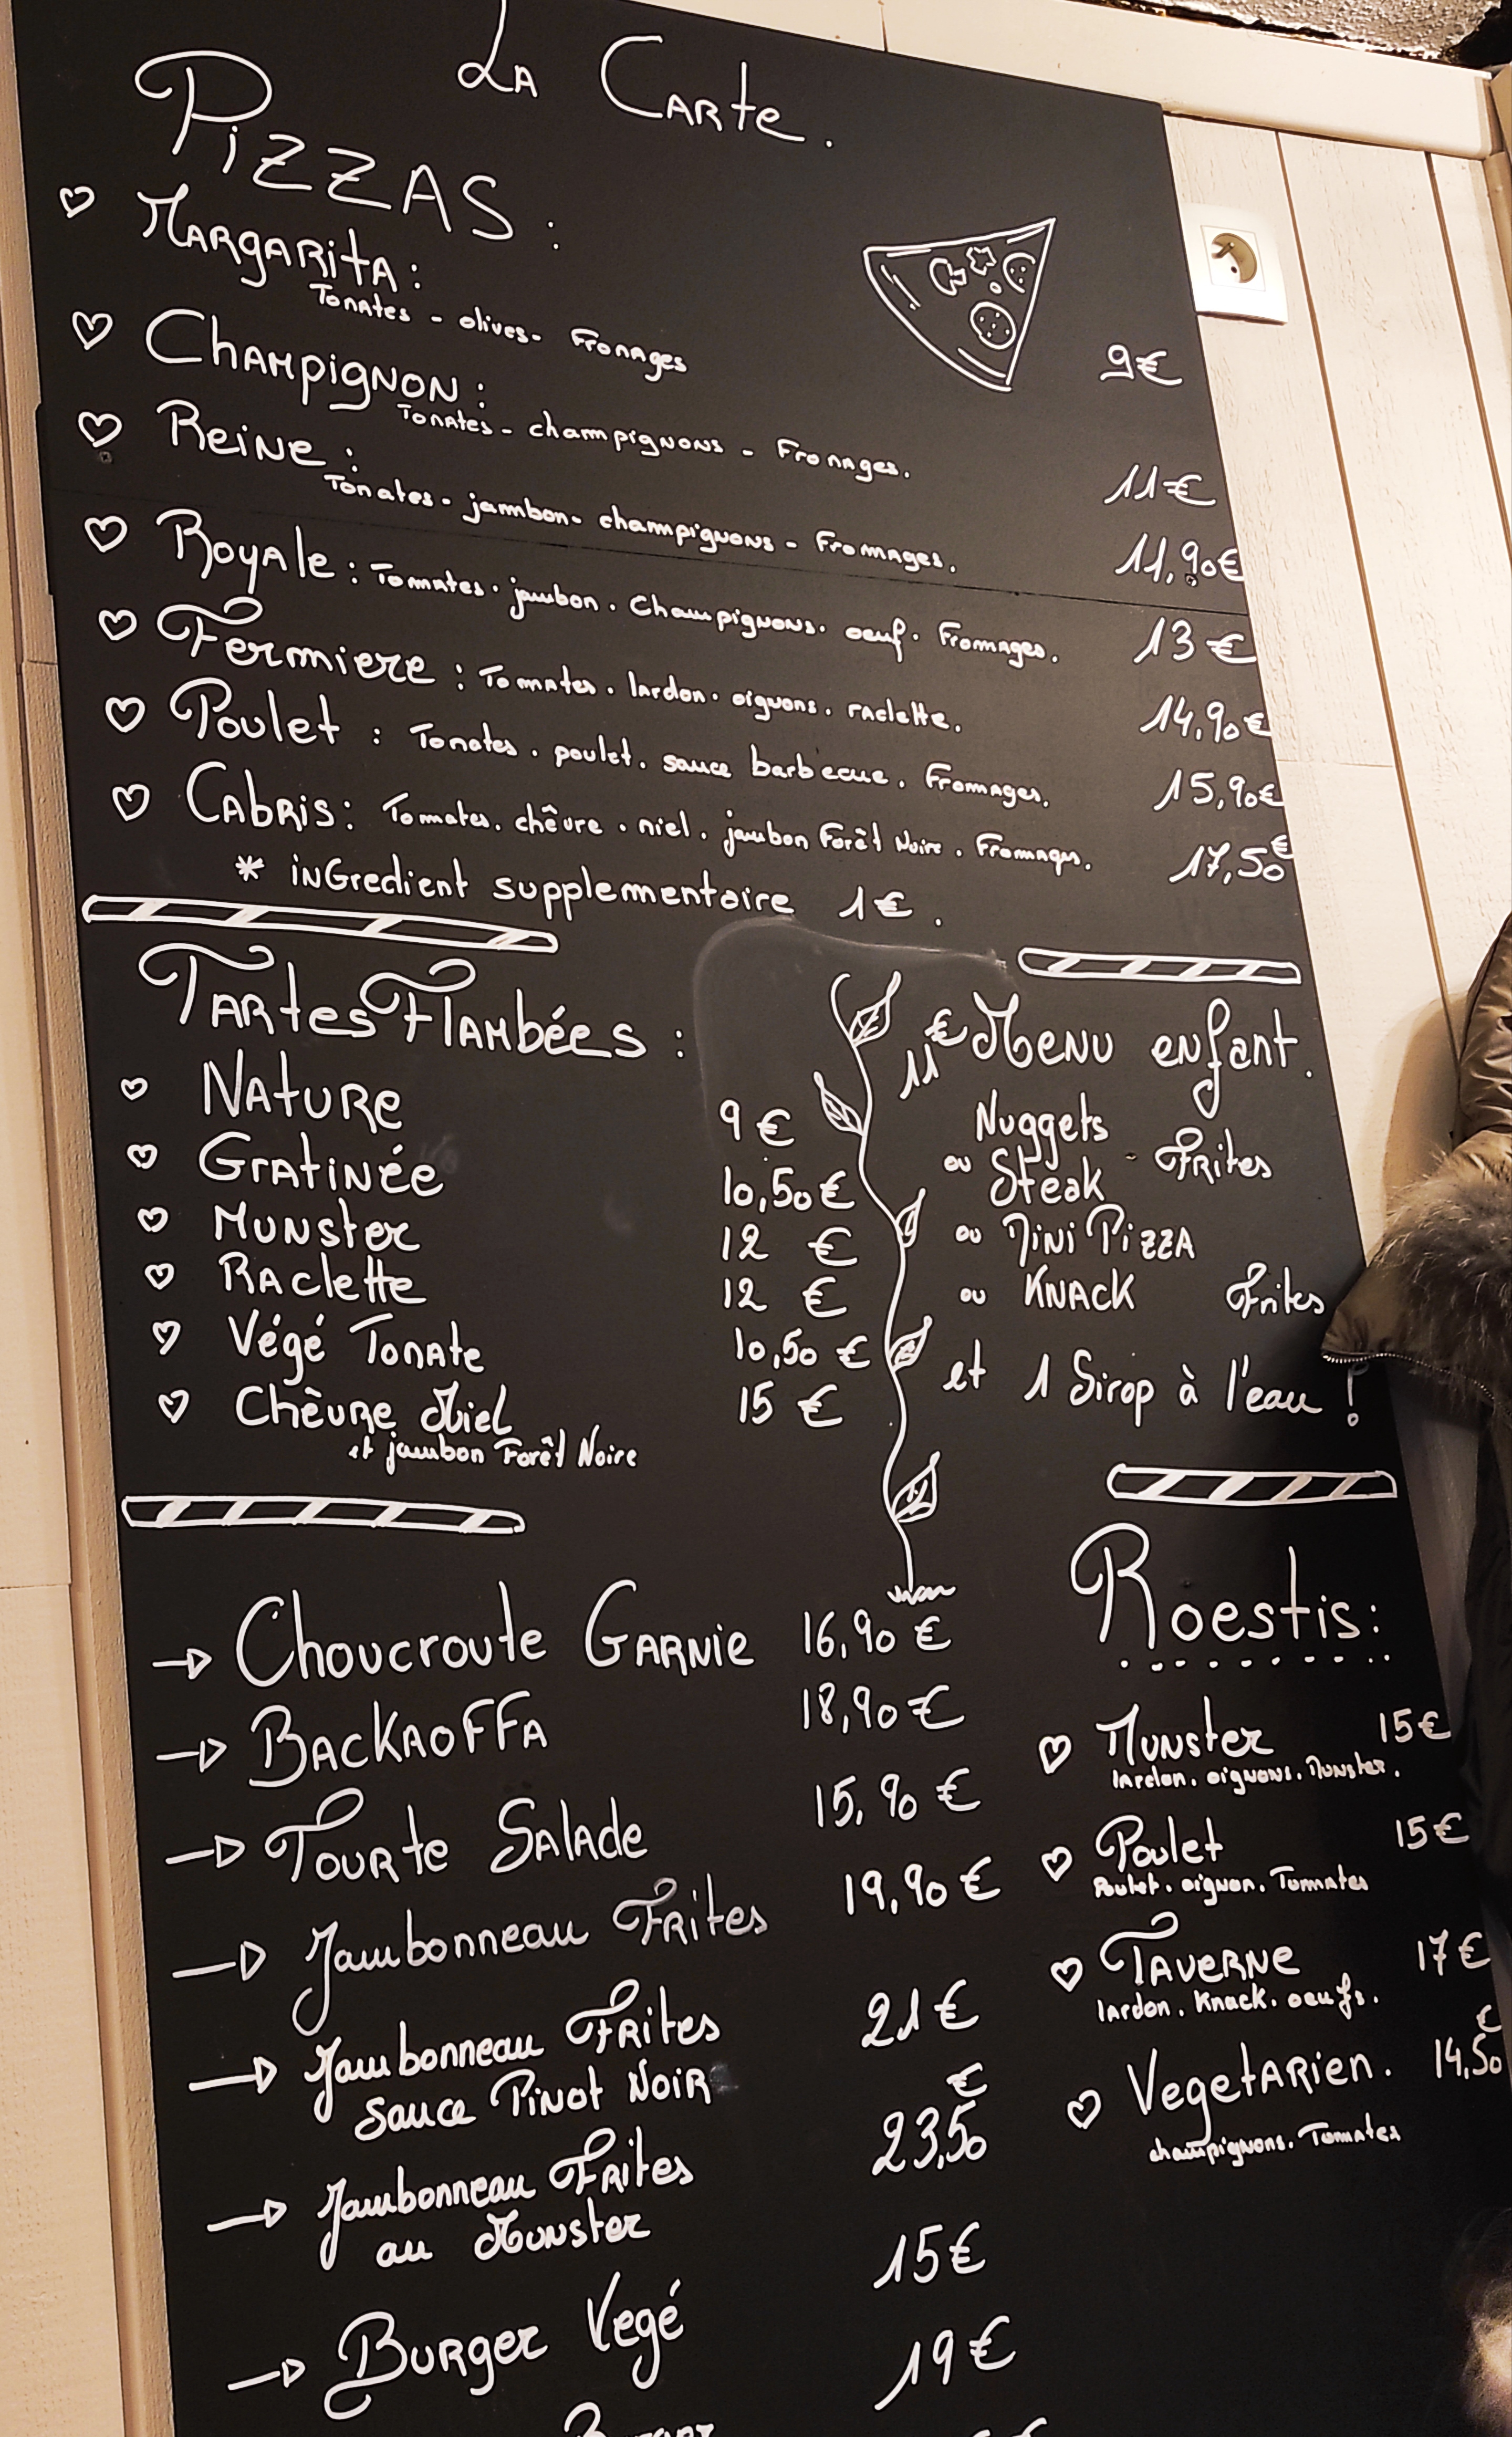 La Carte.
Pizzas :
Margarita : 9€
Tomates - olives - Fromages
Champignon : 11€
Tomates - champignons - Fromages.
Reine : 11,90€
Tomates - jambon - champignons - Fromages.
Royale : Tomates . jambon . Champignons . oeuf . Fromages. 13€
Fermiere : Tomates . lardon . oignons . raclette. 14,90€
Poulet : Tomates . poulet . sauce barbecue . Fromages. 15,90€
Cabris : Tomates . chêvre . miel . jambon Forêt Noire . Fromages. 17,50€
* ingredient supplementaire 1€.
Tartes Flambées :
Nature 9€
Gratinée 10,50€
Munster 12€
Raclette 12€
Végé Tomate 10,50€
Chèvre Miel 15€
et jambon Forêt Noire
11€ Menu enfant.
Nuggets
ou Steak - Frites
ou Mini Pizza
ou Knack Frites
et 1 Sirop à l'eau !
→ Choucroute Garnie 16,90€
→ Backaoffa 18,90€
→ Tourte Salade 15,90€
→ Jambonneau Frites 19,90€
→ Jambonneau Frites 21€
sauce Pinot Noir
→ Jambonneau Frites 23,50€
au Munster
→ Burger Vegé 15€
19€
Roestis :
Munster 15€
lardon . oignons . Munster.
Poulet 15€
Poulet . oignon . Tommates
Taverne 17€
lardon . Knack . oeufs.
Vegetarien. 14,50€
champignons . Tomates